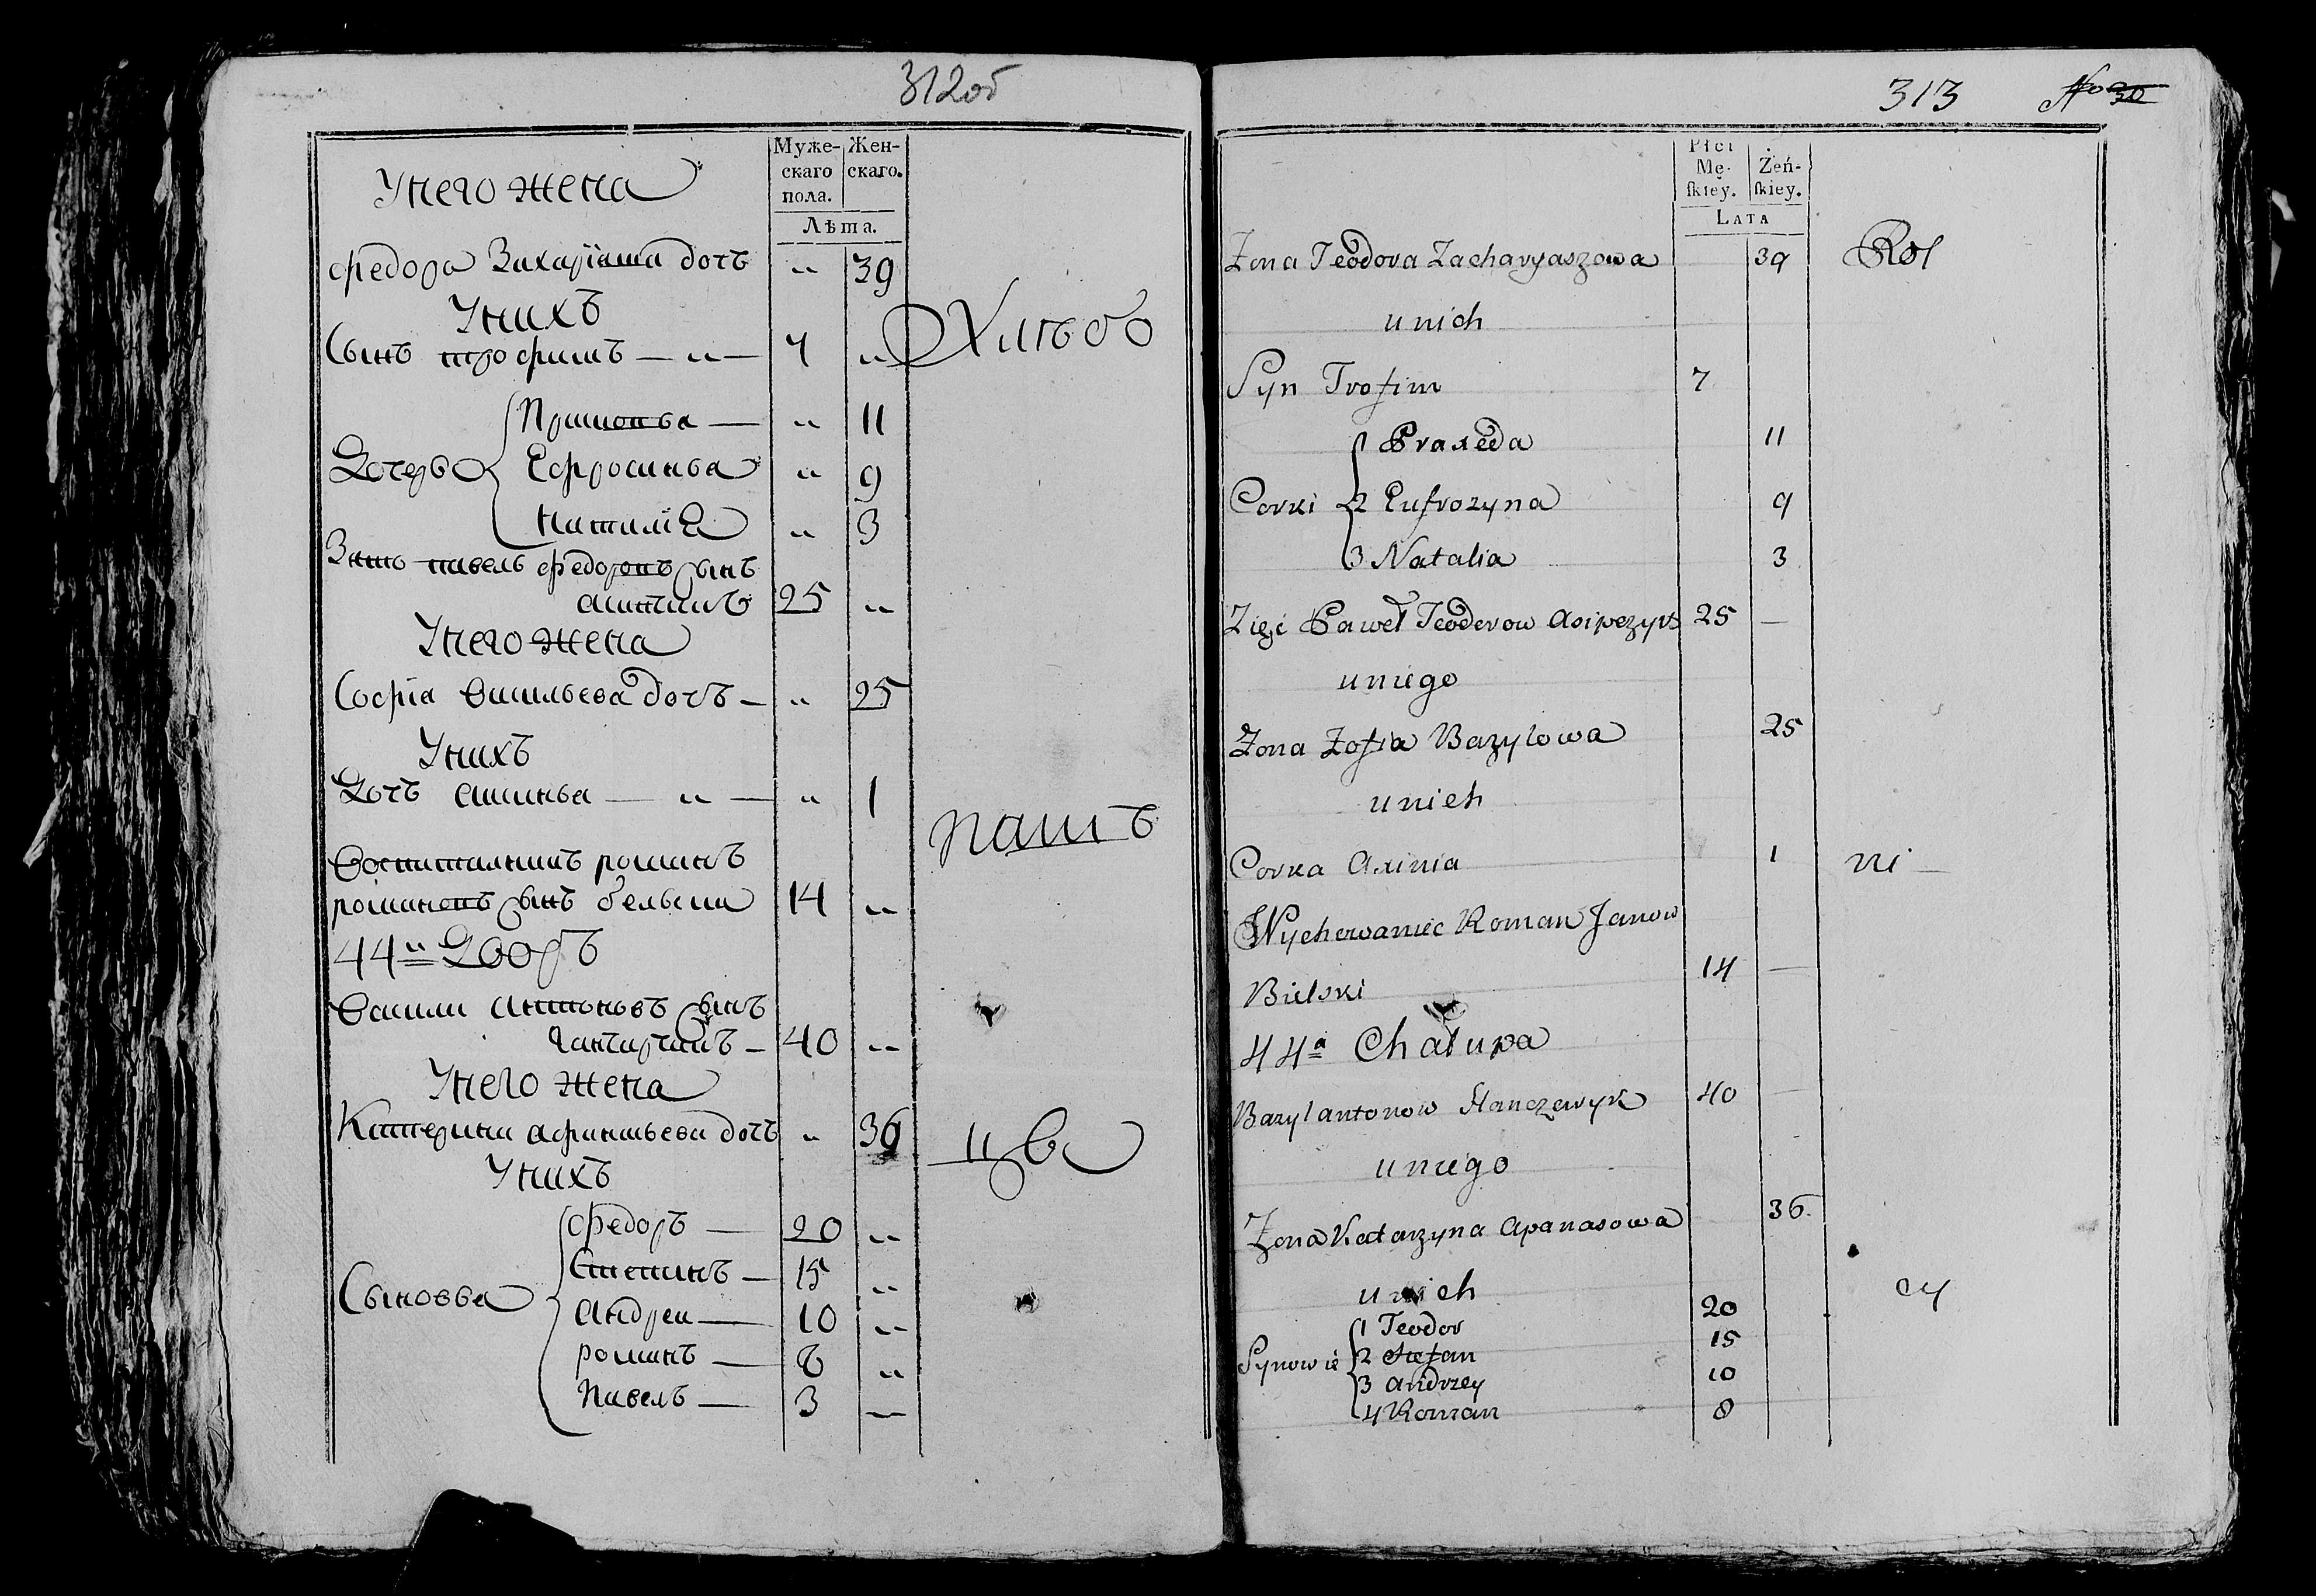 312об
Муже-
скаго
пола.
Жен-
скаго.
Лѣта.
У него жена
Федора Захаріяша дочь „ 39
У нихъ
Сынъ трофимъ — „ — 7 „
Хлѣбо
Дочерьи
Ефросинья „ 9
Наталіа „ 3
Зять павелъ федоровъ сынъ
25 „
У него жена
Софіа васильева дочъ — „ 25
У нихъ
Дочъ — „ — „ 1
пашъ
Воспитанникъ романъ
романовъ сынъ 14 „
44й Дворъ
Васили антоновъ сынъ
40 „
У него жена
Катерина афанасьева дочъ „ 36
У нихъ
Сыновья
федоръ — 20 „
Степанъ — 15 „
Андреи — 10 „
романъ — 8 „
Павелъ — 3 —
313 No 30
Płci
Mę-
skiey.
Żeń-
skiey.
LATA
Żona Teodora Zacharyaszowa 39 Rol
u nich
Syn Trofim 7
1 Praxeda 11
Corki 2 Eufrozyna 9
3 Natalia 3
Zięć Paweł Teodorow Asipczyk 25 —
u niego
Żona Zofia Bazylowa 25
u nich
Corka Axinia 1 ni —
Wychowaniec Roman Janow
Bielski 14 —
44a Chałupa
Bazyl antonow Hanczewyk 40 —
u niego
Żona Katarzyna Apanasowa 36.
u nich
Synowie 1 Teodor 20
2 Stefan 15
3 Andrzey 10
4 Roman 8